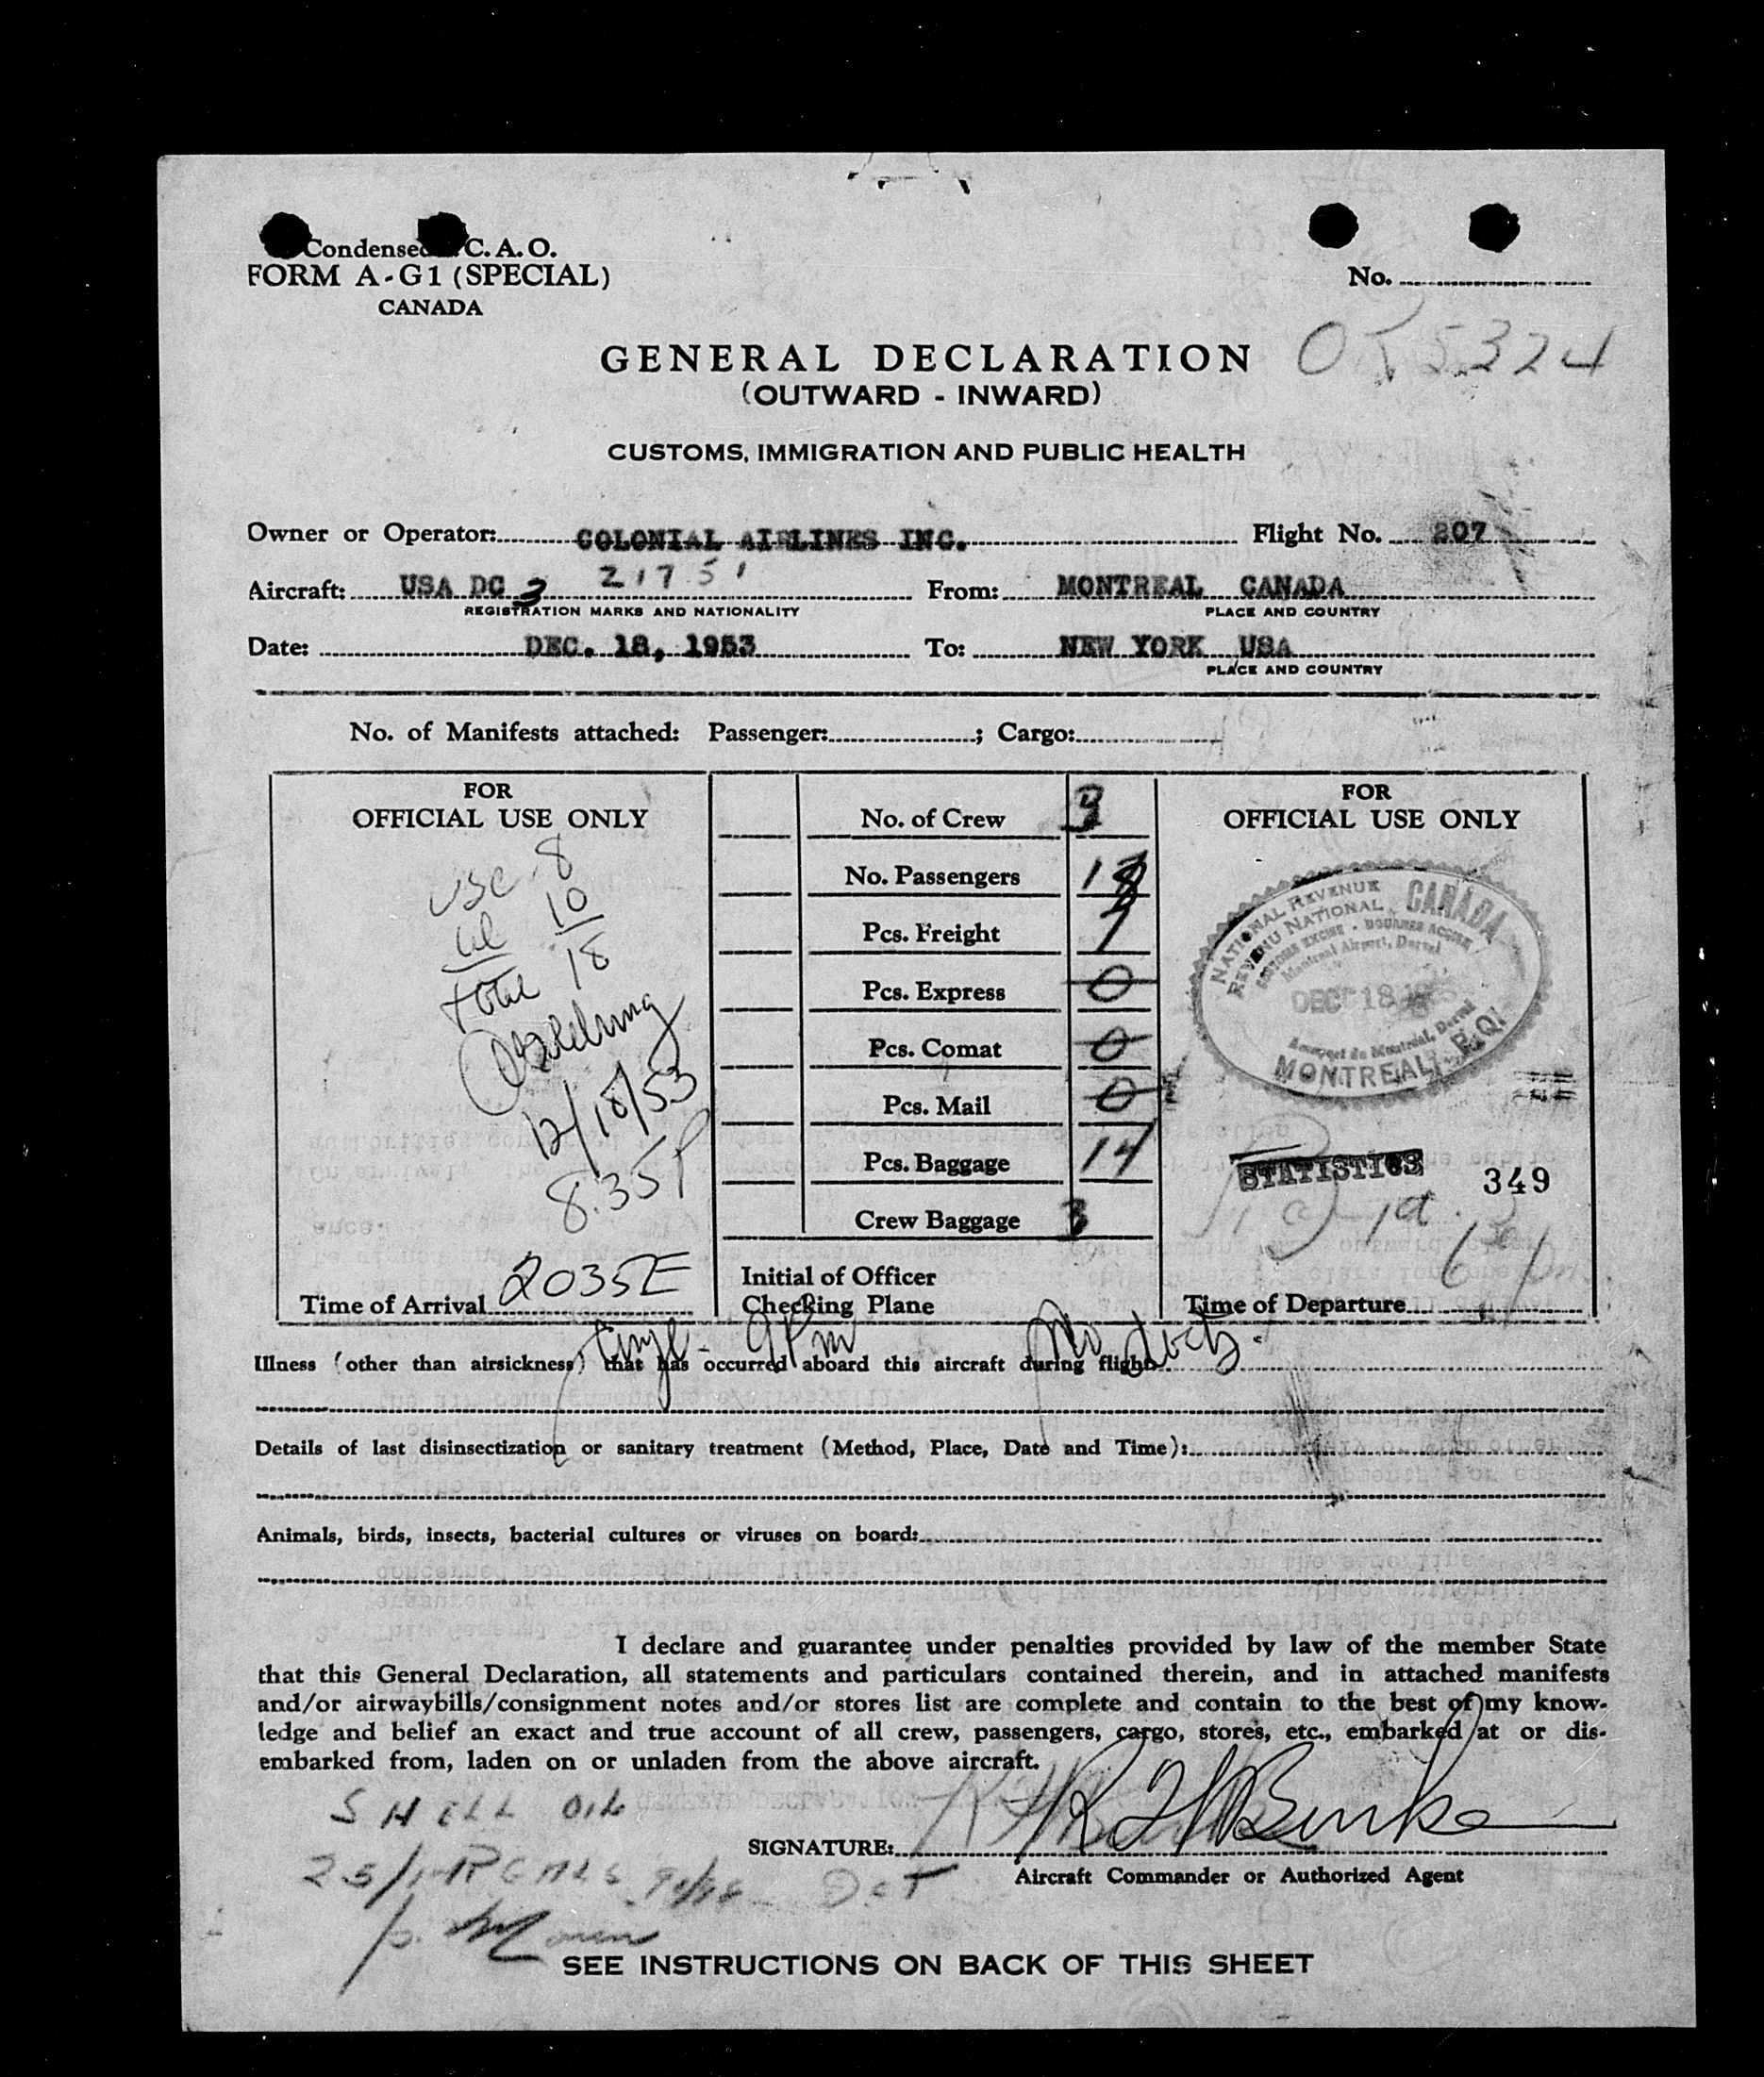 Condensed C. A. O.
FORM A-G1 (SPECIAL)
CANADA
No.
5324
GENERAL DECLARATION
(OUTWARD - INWARD)
CUSTOMS, IMMIGRATION AND PUBLIC HEALTH
Owner or Operator: COLONIAL AIRLINES INC. Flight No. 207
Aircraft: USA DC 3 21751 From: MONTREAL CANADA
REGISTRATION MARKS AND NATIONALITY PLACE AND COUNTRY
Date: DEC. 18, 1953 To: NEW YORK USA
PLACE AND COUNTRY
No. of Manifests attached: Passenger: ; Cargo:
FOR
OFFICIAL USE ONLY
USC 8
10
total 18
12/18/53
8.35P
Time of Arrival 2035E
No. of Crew 3
No. Passengers 18
Pcs. Freight
Pcs. Express 0
Pcs. Comat 0
Pcs. Mail 0
Pcs. Baggage 14
Crew Baggage 3
Initial of Officer
Checking Plane
FOR
OFFICIAL USE ONLY
NATIONAL REVENUE CANADA
REVENU NATIONAL
CUSTOMS EXCISE - DOUANES ACCISE
Montreal Airport, Dorval
DEC 18
Aeroport de Montreal, Dorval
MONTREAL, P.Q.
STATISTICS 349
Time of Departure
9Pm No docs.
Illness (other than airsickness) that has occurred aboard this aircraft during flight
Details of last disinsectization or sanitary treatment (Method, Place, Date and Time):
Animals, birds, insects, bacterial cultures or viruses on board:
I declare and guarantee under penalties provided by law of the member State
that this General Declaration, all statements and particulars contained therein, and in attached manifests
and/or airwaybills/consignment notes and/or stores list are complete and contain to the best of my know-
ledge and belief an exact and true account of all crew, passengers, cargo, stores, etc., embarked at or dis-
embarked from, laden on or unladen from the above aircraft.
SHELL OIL
SIGNATURE:
Aircraft Commander or Authorized Agent
SEE INSTRUCTIONS ON BACK OF THIS SHEET